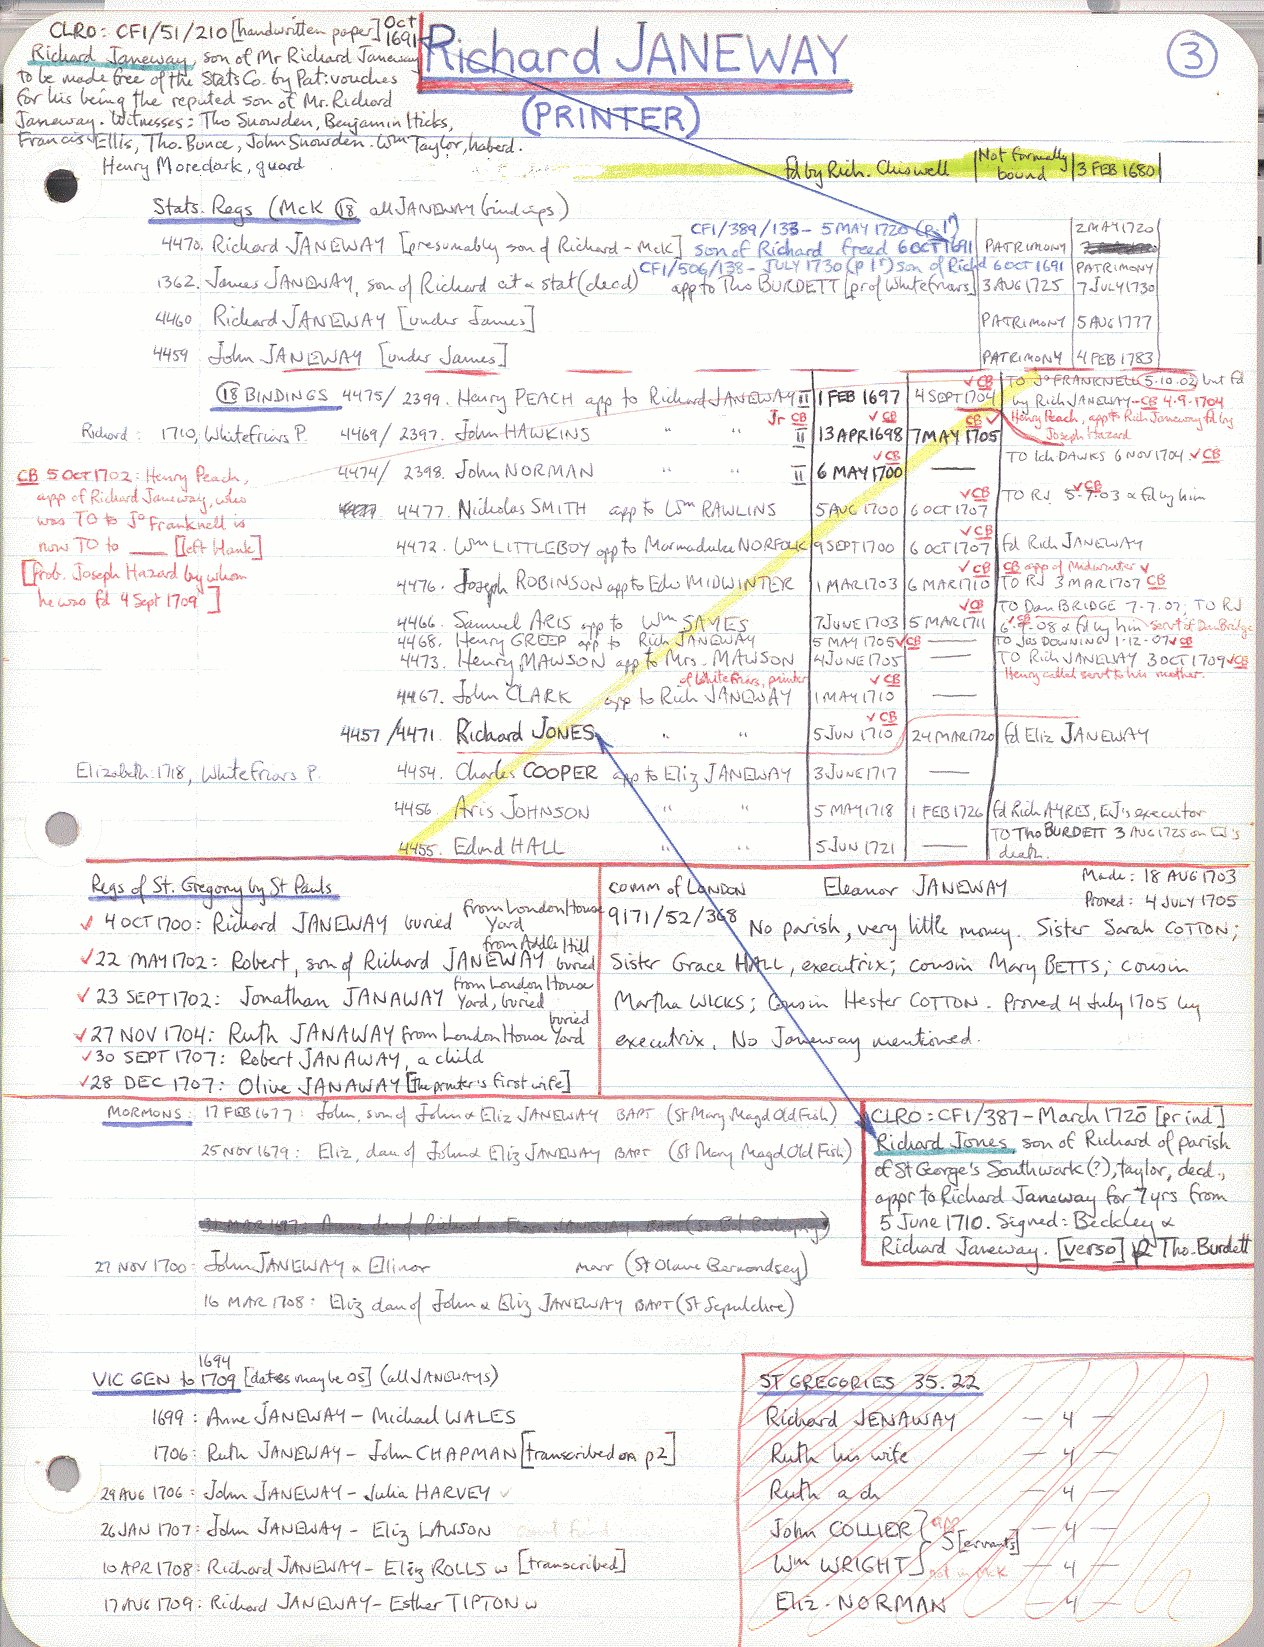 CLRO: CF1/51/210 [handwritten paper] Oct 1691
Richard Janeway, son of Mr Richard Janeway
to be made free of the Stats Co. by Pat: vouches
for his being the reputed son of Mr. Richard
Janeway. Witnesses: Tho Snowden, Benjamin Hicks,
Francis Ellis, Tho. Bunce, John Snowden. Wm Taylor, haberd.
Henry Moredark, guard
Richard JANEWAY
(PRINTER)
3
fd by Rich. Chiswell | Not formally bound | 3 FEB 1680
Stats. Regs (McK 18 all JANEWAY bindings)
CF1/389/133 - 5 MAY 1720 (p. 1r) 2 MAY 1720
4470. Richard JANEWAY [presumably son of Richard - McK] son of Richard freed 6 OCT 1691 | PATRIMONY
CF1/506/138 - JULY 1730 (p 1r) son of Richd 6 OCT 1691 PATRIMONY
1362. James JANEWAY, son of Richard cit & stat (decd) app to Tho BURDETT [pr of Whitefriars] 3 AUG 1725 7 JULY 1730
4460 Richard JANEWAY [under James] PATRIMONY 5 AUG 1777
4459 John JANEWAY [under James] PATRIMONY 4 FEB 1783
18 BINDINGS 4475/2399. Henry PEACH app to Richard JANEWAY II 1 FEB 1697 4 SEPT 1704 ✓CB TO Jo FRANKNELL 5.10.02 but fd
by Rich JANEWAY - CB 4.9.1704
Richard: 1710, Whitefriars P. 4469/2397. John HAWKINS " " Jr CB II 13 APR 1698 ✓CB 7 MAY 1705 CB ✓ Henry Peach, app to Rich Janeway fd by
Joseph Hazard
4474/2398. John NORMAN " " II 6 MAY 1700 ✓CB — TO Ich DAWKS 6 NOV 1704 ✓CB
CB 5 OCT 1702: Henry Peach,
app of Richard Janeway, who
was TO to Jo Franknell is
now TO to ___ [left blank]
[Prob. Joseph Hazard by whom
he was fd 4 Sept 1709]
4477. Nicholas SMITH app to Wm RAWLINS 5 AUG 1700 6 OCT 1707 ✓CB TO RJ 5-7-03 & fd by him ✓CB
4472. Wm LITTLEBOY app to Marmaduke NORFOLK 9 SEPT 1700 6 OCT 1707 ✓CB fd Rich JANEWAY
4476. Joseph ROBINSON app to Edw MIDWINTER 1 MAR 1703 6 MAR 1710 ✓CB CB app of Midwinter ✓
TO RJ 3 MAR 1707 CB
4466. Samuel ARIS app to Wm SAYES 7 JUNE 1703 5 MAR 1711 ✓CB TO Dan BRIDGE 7-7-07; TO RJ
6-9-08 & fd by him ✓CB servt of Dan Bridge
4468. Henry GREEP app to Rich JANEWAY 5 MAY 1705 ✓CB — TO Jos DOWNING 1-12-07 ✓CB
4473. Henry MAWSON app to Mrs. MAWSON 4 JUNE 1705 — TO Rich JANEWAY 3 OCT 1709 ✓CB
Henry called servt to his mother.
of Whitefriars, printer
4467. John CLARK app to Rich JANEWAY 1 MAY 1710 ✓CB —
4457/4471. Richard JONES " " 5 JUN 1710 ✓CB 24 MAR 1720 fd Eliz JANEWAY
Elizabeth: 1718, Whitefriars P. 4454. Charles COOPER app to Eliz JANEWAY 3 JUNE 1717 —
4456 Aris JOHNSON " " 5 MAY 1718 1 FEB 1726 fd Rich AYRES, EJ's executor
4455. Edmd HALL " " 5 JUN 1721 — TO Tho BURDETT 3 AUG 1725 on EJ's
death.
Regs of St. Gregory by St Pauls
✓ 4 OCT 1700: Richard JANEWAY buried from London House Yard
✓ 22 MAY 1702: Robert, son of Richard JANEWAY from Addle Hill buried
✓ 23 SEPT 1702: Jonathan JANAWAY from London House Yard, buried
✓ 27 NOV 1704: Ruth JANAWAY from London House Yard buried
✓ 30 SEPT 1707: Robert JANAWAY, a child
✓ 28 DEC 1707: Olive JANAWAY [the printer's first wife]
COMM of LONDON Eleanor JANEWAY Made: 18 AUG 1703
Proved: 4 JULY 1705
9171/52/368 No parish, very little money. Sister Sarah COTTON;
Sister Grace HALL, executrix; cousin Mary BETTS; cousin
Martha WICKS; Cousin Hester COTTON. Proved 4 July 1705 by
executrix. No Janeway mentioned.
MORMONS: 17 FEB 1677: John, son of John & Eliz JANEWAY BAPT (St Mary Magd Old Fish)
25 NOV 1679: Eliz, dau of John & Eliz JANEWAY BAPT (St Mary Magd Old Fish)
27 NOV 1700: John JANEWAY & Elinor marr (St Olave Bermondsey)
16 MAR 1708: Eliz dau of John & Eliz JANEWAY BAPT (St Sepulchre)
CLRO: CF1/387 - March 1720 [pr ind]
Richard Jones, son of Richard of parish
of St George's Southwark (?), taylor, decd.,
appr to Richard Janeway for 7 yrs from
5 June 1710. Signed: Beckley &
Richard Janeway. [verso] Tho. Burdett
VIC GEN to 1694 1709 [dates may be OS] (all JANEWAYS)
1699: Anne JANEWAY - Michael WALES
1706: Ruth JANEWAY - John CHAPMAN [transcribed on p2]
29 AUG 1706: John JANEWAY - Julia HARVEY ✓
26 JAN 1707: John JANEWAY - Eliz LAWSON cant find
10 APR 1708: Richard JANEWAY - Eliz ROLLS w [transcribed]
17 AUG 1709: Richard JANEWAY - Esther TIPTON w
ST GREGORIES 35.22
Richard JENAWAY — 4 —
Ruth his wife — 4 —
Ruth a ch — 4 —
John COLLIER } app S[ervants] — 4 —
Wm WRIGHT } not in McK — 4 —
Eliz. NORMAN — 4 —